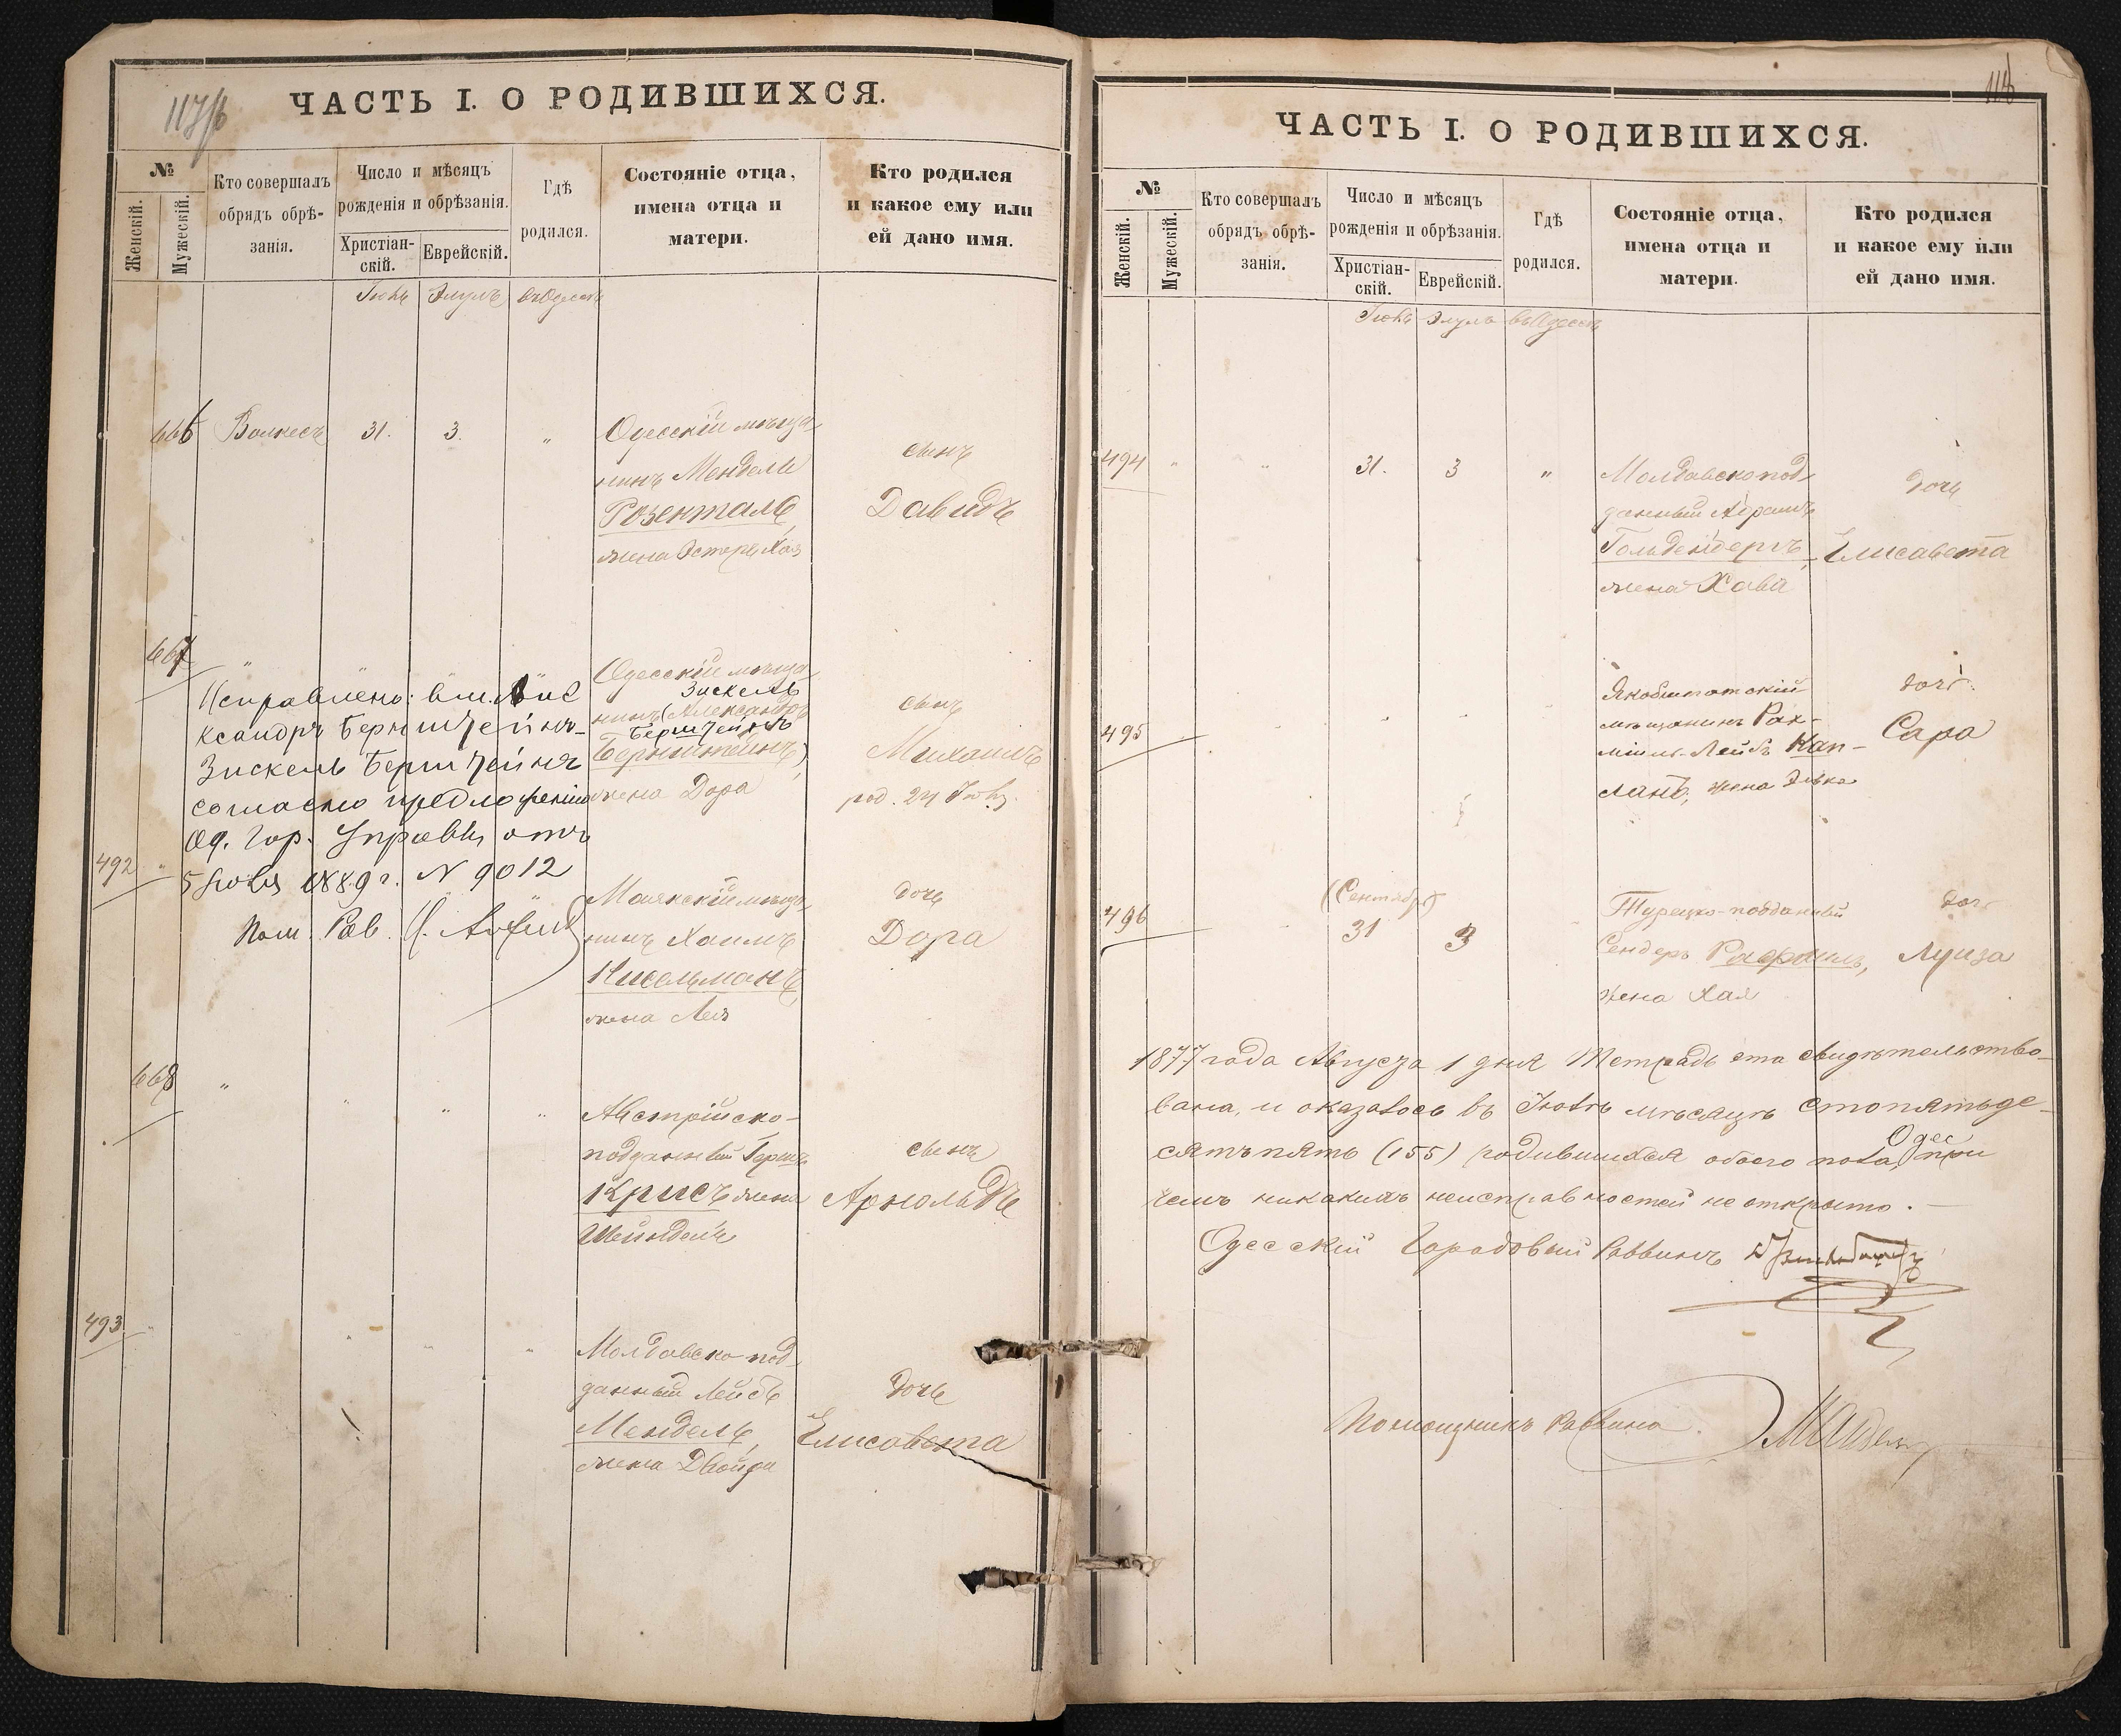 ЧАСТЬ I. О РОДИВШИХСЯ.
№
Женскій.
Мужескій.
Кто совершалъ
обрядъ обрѣ-
занія.
Число и мѣсяцъ
рожденія и обрѣзанія.
Христіан-
скій.
Еврейскій.
Гдѣ
родился.
Состояніе отца,
имена отца и
матери.
Кто родился
и какое ему или
ей дано имя.
Іюль Элулъ въ Одессѣ
666 Волкесъ 31. 3. "
Одесскій мѣща-
нинъ Мендель
Розенталь,
жена Эстеръ Хая
сынъ
Давидъ
667 " "
Одесскій мѣща-
Зискель
нинъ (Александръ
Берштейнъ
Бернштейнъ),
жена Дора
сынъ
Михаилъ
род. 24 Іюля.
Исправлено: вм. Але
ксандръ Бернштейнъ-
Зискель Берштейнъ
согласно предложенію
Од. Гор. Управы отъ
5 Іюля 1889 г. N 9012
Пом. Рав.
492 "
Маякскій мѣща-
нинъ Хаимъ
Кисельманъ,
жена Лея
дочь
Дора
668 " " " "
Австрійско-
подданный Гершъ
Крисъ жена
Шейндель
сынъ
Арнольдъ
493 " " " "
Молдавско под-
данный Лейбъ
Мендель,
жена Двойра
дочь
Елисавета
118
ЧАСТЬ I. О РОДИВШИХСЯ.
№
Женскій.
Мужескій.
Кто совершалъ
обрядъ обрѣ-
занія.
Число и мѣсяцъ
рожденія и обрѣзанія.
Христіан-
скій.
Еврейскій.
Гдѣ
родился.
Состояніе отца,
имена отца и
матери.
Кто родился
и какое ему или
ей дано имя.
Іюль Элулъ въ Одессѣ
494 " " 31. 3 "
Молдавско под-
данный Абрамъ
Гольденбергъ,
жена Хава
дочь
Елисавета
495 " " " "
Якобштатскій
мѣщанинъ Рах-
міилъ-Лейбъ Кап-
ланъ, жена Элька
дочь
Сара
496
(Сентябрь)
31 3
Турецко-подданный
Сендеръ Рафаилъ,
жена Хая
дочь
Луиза
1877 года Августа 1 дня Тетрадь эта свидѣтельство-
вана, и оказалось въ Іюлѣ мѣсяцѣ сто пятьде-
сятъ пять (155) родившихся обоего пола, при
чемъ никакихъ неисправностей не открыто. —
Одесскій Городовой Раввинъ
Помощникъ Раввина.